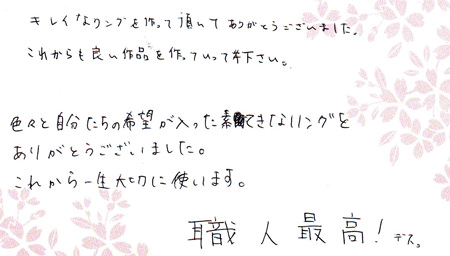 キレイなリングを作って頂いてありがとうございました。
これからも良い作品を作っていって下さい。
色々と自分たちの希望が入った素てきなリングを
ありがとうございました。
これから一生大切に使います。
職人最高！デス。